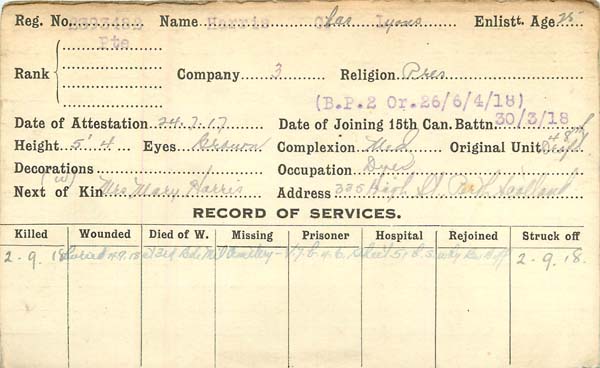 Reg. No. 2393482 Name Harris Chas Lyons Enlistt. Age 25
Pte
Rank Company 3 Religion Pres
(B.P.2 Or.26/6/4/18)
Date of Attestation 24.7.17 Date of Joining 15th Can. Battn. 30/3/18
Height 5' 4 Eyes Brown Complexion Med Original Unit 48th
Decorations Occupation Dyer
(W)
Next of Kin Mrs Mary Harris Address 335 High St. Perth Scotland
RECORD OF SERVICES.
Killed Wounded Died of W. Missing Prisoner Hospital Rejoined Struck off
2.9.18 Buried 4.9.18 at 3rd Bde Cemetery 2.9.18.